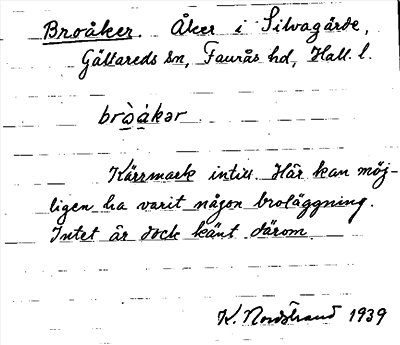 Broåker. Åker i Silvagärde,
Gällareds sn, Faurås hd, Hall. l.
brò̀ȧ́kər
Kärrmark intill. Här kan möj-
ligen ha varit någon broläggning.
Intet är dock känt därom.
K. Nordstrand 1939